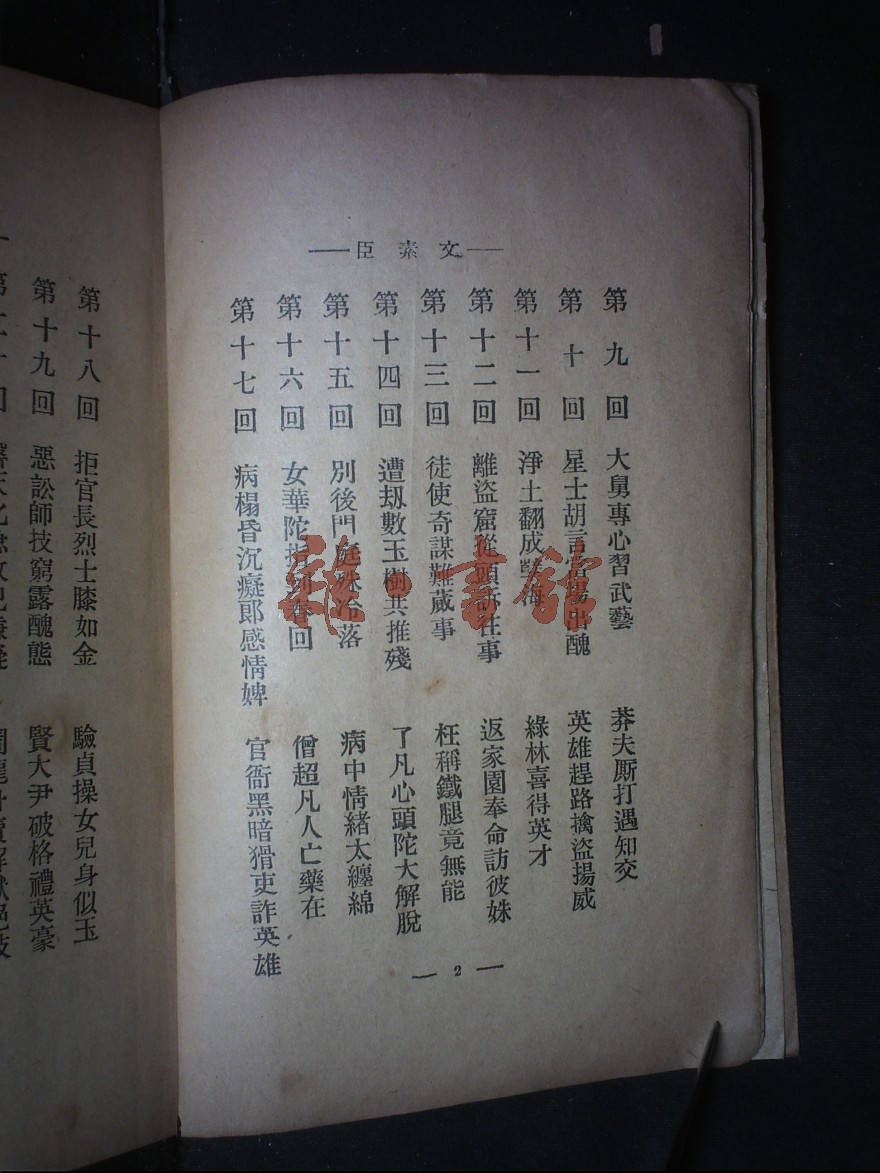 ——文素臣——
第九回 大舅專心習武藝 莽夫厮打遇知交
第十回 星士胡言當場出醜 英雄趕路擒盜揚威
第十一回 淨土翻成孽海 綠林喜得英才
第十二回 離盜窟從頭訴往事 返家園奉命訪彼姝
第十三回 徒使奇謀難蕆事 枉稱鐵腿竟無能
第十四回 遭刼數玉樹共摧殘 了凡心頭陀大解脫
第十五回 別後門庭殊冷落 病中情緒太纏綿
第十六回 女華陀指到春回 僧超凡人亡藥在
第十七回 病榻昏沉癡郎感情婢 官衙黑暗猾吏詐英雄
— 2 —
第十八回 拒官長烈士膝如金 驗貞操女兒身似玉
第十九回 惡訟師技窮露醜態 賢大尹破格禮英豪
雜·書館